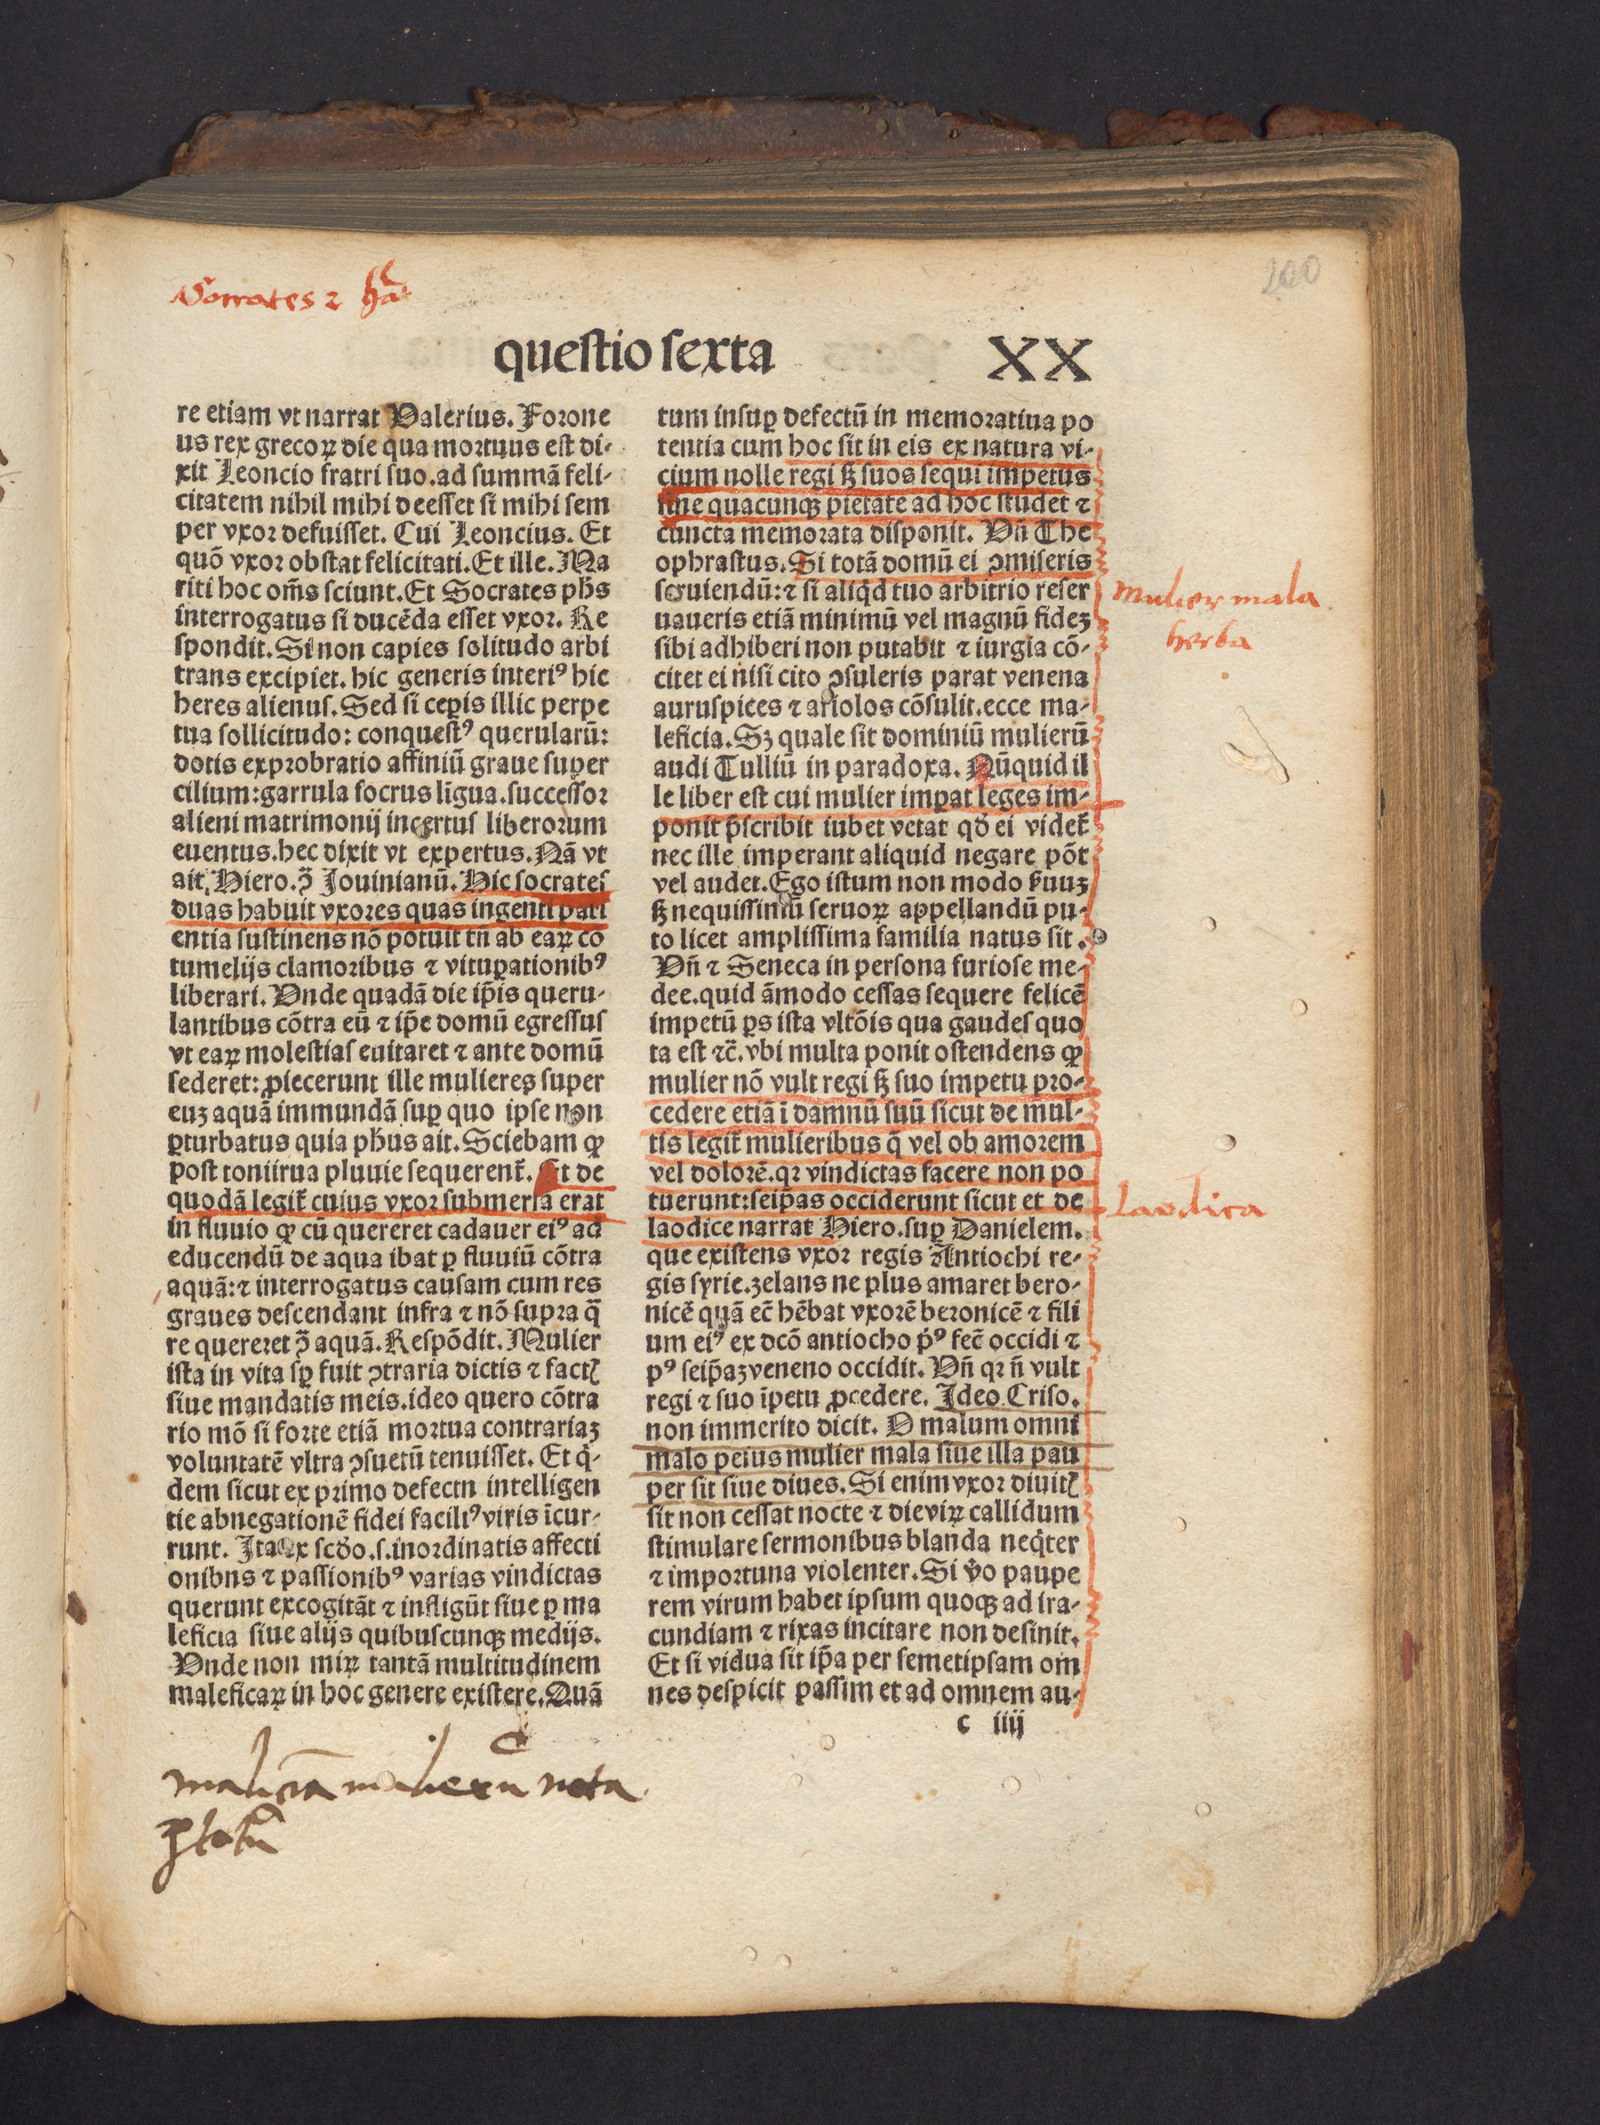 200
Socrates ⁊
questio sexta
XX
re etiam vt narrat Valerius. Forone
us rex grecoꝝ die qua mortuus est di-
xit Leoncio fratri suo.ad summā feli-
citatem nihil mihi deesset si mihi sem
per vxor defuisset. Cui Leoncius. Et
quō vxor obstat felicitati. Et ille. Ma
riti hoc om̄s sciunt. Et Socrates ph̄s
interrogatus si ducēda esset vxor. Re
spondit. Si non capies solitudo arbi
trans excipiet. hic generis interiꝰ hic
heres alienus. Sed si ceꝑis illic perpe
tua sollicitudo: conquestꝰ querularū:
dotis exprobratio affiniū graue super
cilium: garrula socrus līgua. successor
alieni matrimonij incertus liberorum
euentus. hec dixit vt expertus. Nā vt
ait, Hiero.ↄ̄ Jouinianū. Hic socrates
duas habuit vxores quas ingenti pati
entia sustinens nō potuit tn̄ ab eaꝝ cō
tumelijs clamoribus ⁊ vituꝑationibꝰ
liberari. Vnde quadā die ip̄is queru-
lantibus cōtra eū ⁊ ip̄e domū egressus
vt eaꝝ molestias euitaret ⁊ ante domū
sederet: ꝓiecerunt ille mulieres super
euꝫ aquā immundā suꝑ quo ipse non
ꝑturbatus quia ph̄us ait. Sciebam ꝙ
post tonitrua pluuie sequerent̄. Et de
quodā legit̄ cuius vxor submersa erat
in fluuio ꝙ cū quereret cadauer eiꝰ ad
educendū de aqua ibat ꝑ fluuiū cōtra
aquā: ⁊ interrogatus causam cum res
graues descendant infra ⁊ nō supra q̄
re quereret ↄ̄ aquā. Respōdit. Mulier
ista in vita sꝑ fuit ↄtraria dictis ⁊ factꝭ
siue mandatis meis. ideo quero cōtra
rio mō si forte etiā mortua contrariaꝫ
voluntatē vltra ↄsuetū tenuisset. Et q̇-
dem sicut ex primo defectn intelligen
tie abnegationē fidei faciliꝰ viris īcur-
runt. Ita ex scd̄o.s.inordinatis affecti
onibns ⁊ passionibꝰ varias vindictas
querunt excogitāt ⁊ infligūt siue ꝑ ma
leficia siue alijs quibuscunqꝫ medijs.
Vnde non miꝝ tantā multitudinem
maleficaꝝ in hoc genere existere. Quā
tum insuꝑ defectū in memoratiua po
tentia cum hoc sit in eis ex natura vi-
cium nolle regi sꝫ suos sequi impetus
sine quacunqꝫ pietate ad hoc studet ⁊
cuncta memorata disponit. Vn̄ The
ophrastus. Si totā domū ei ↄmiseris
seruiendū: ⁊ si aliq̇d tuo arbitrio reser
uaueris etiā minimū vel magnū fideꝫ
sibi adhiberi non putabit ⁊ iurgia cō-
citet ei nisi cito ↄsuleris parat venena
auruspices ⁊ ariolos cōsulit. ecce ma-
leficia. Sꝫ quale sit dominiū mulierū
audi Tulliū in paradoxa. Nūquid il
le liber est cui mulier imꝑat leges im-
ponit p̄scribit iubet vetat qd̄ ei videt̄
nec ille imperant aliquid negare pōt
vel audet. Ego istum non modo ẜuuꝫ
sꝫ nequissimū seruoꝝ appellandū pu-
to licet amplissima familia natus sit.
Vn̄ ⁊ Seneca in persona furiose me-
dee. quid āmodo cessas sequere felicē
impetū ꝑs ista vltōis qua gaudes quo
ta est ⁊c̄. vbi multa ponit ostendens ꝙ
mulier nō vult regi sꝫ suo impetu pro-
cedere etiā ī damnū suū sicut de mul-
tis legit̄ mulieribus q̄ vel ob amorem
vel dolorē. qꝛ vindictas facere non po
tuerunt: seip̄as occiderunt sicut et de
laodice narrat Hiero. suꝑ Danielem.
que existens vxor regis Antiochi re-
gis syrie. zelans ne plus amaret bero-
nicē quā ec̄ hēbat vxorē beronicē ⁊ fili
um eiꝰ ex dcō antiocho p̄ꝰ fec̄ occidi ⁊
pꝰ seip̄aꝫ veneno occidit. Vn̄ qꝛ n̄ vult
regi ⁊ suo īpetu ꝓcedere. Ideo Criso.
non immerito dicit. O malum omni
malo peius mulier mala siue illa pau
per sit siue diues. Si enim vxor diuitꝭ
sit non cessat nocte ⁊ die viꝝ callidum
stimulare sermonibus blanda neq̇ter
⁊ importuna violenter. Si v̄o paupe
rem virum habet ipsum quoqꝫ ad ira-
cundiam ⁊ rixas incitare non desinit.
Et si vidua sit ip̄a per semetipsam om
nes despicit passim et ad omnem au-
c iiij
Mulier mala
herba
Laodica
maliciā mulierū nota